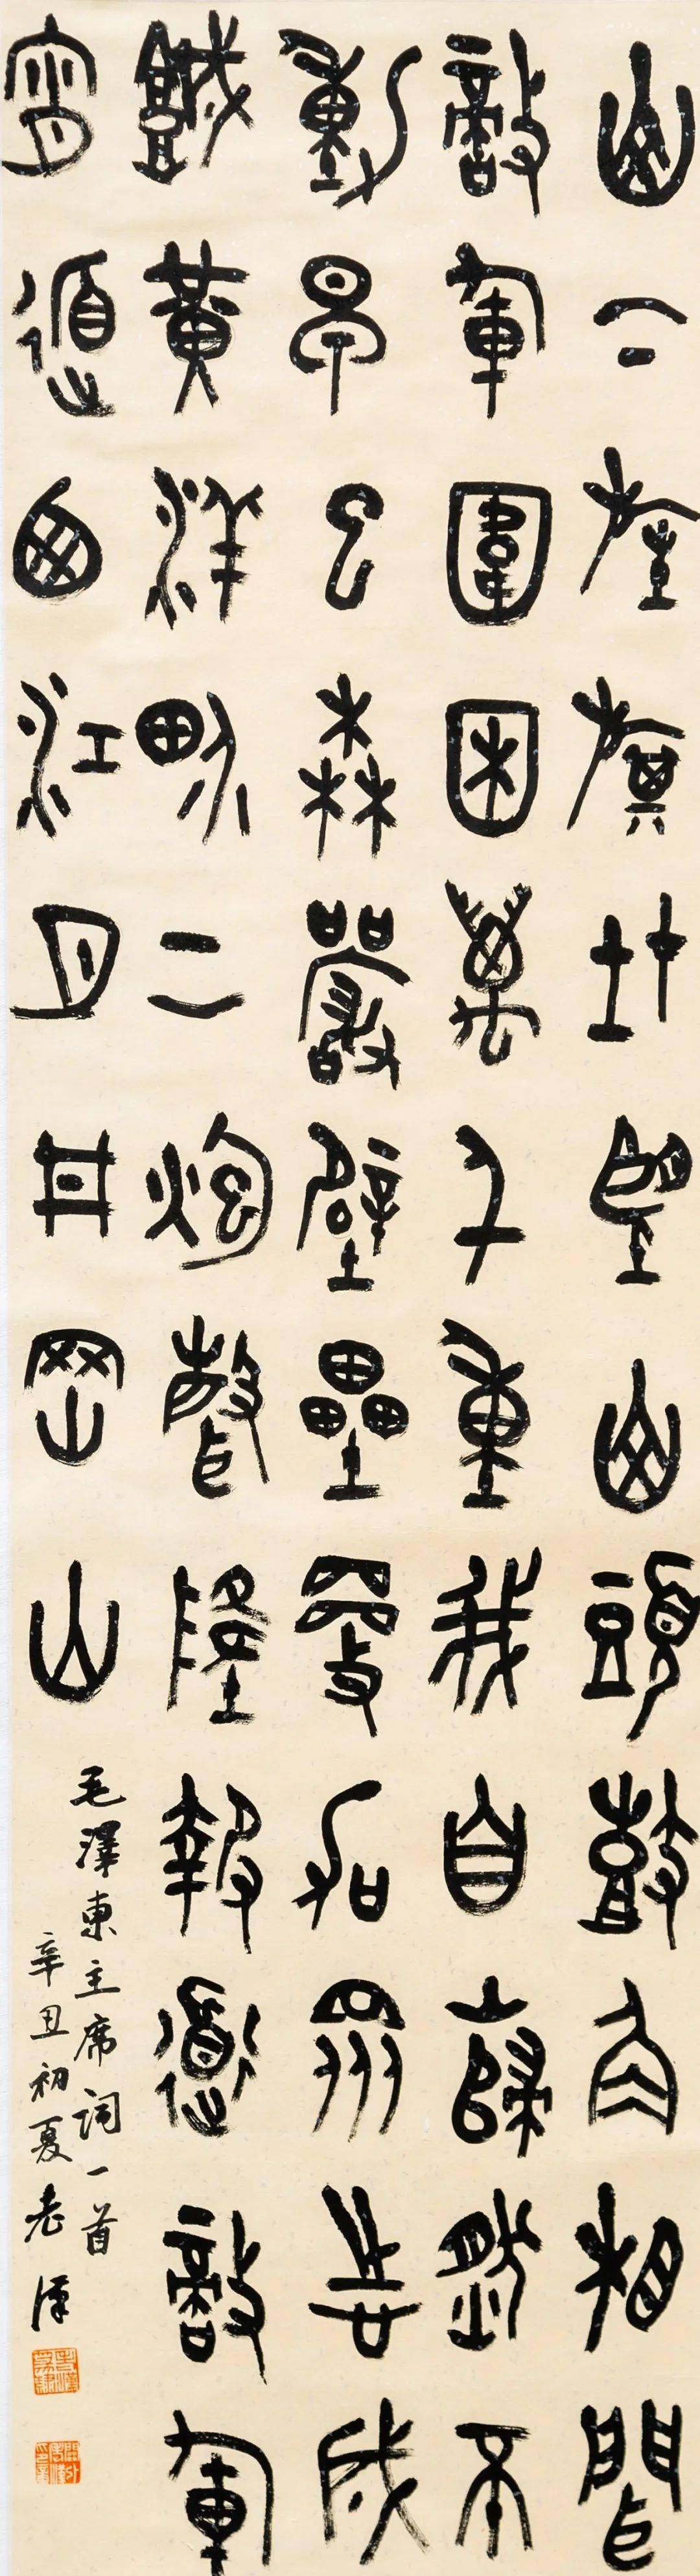 山下旌旗在望山頭鼓角相聞
敵軍圍困萬千重我自巋然不
動早已森嚴壁壘更加眾志成
城黃洋界上炮聲隆報道敵軍
宵遁西江月井岡山
毛澤東主席詞一首
辛丑初夏老漢